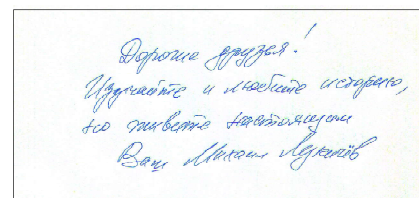 Дорогие друзья!
Изучайте и любите историю,
но живите настоящим
Ваш Михаил